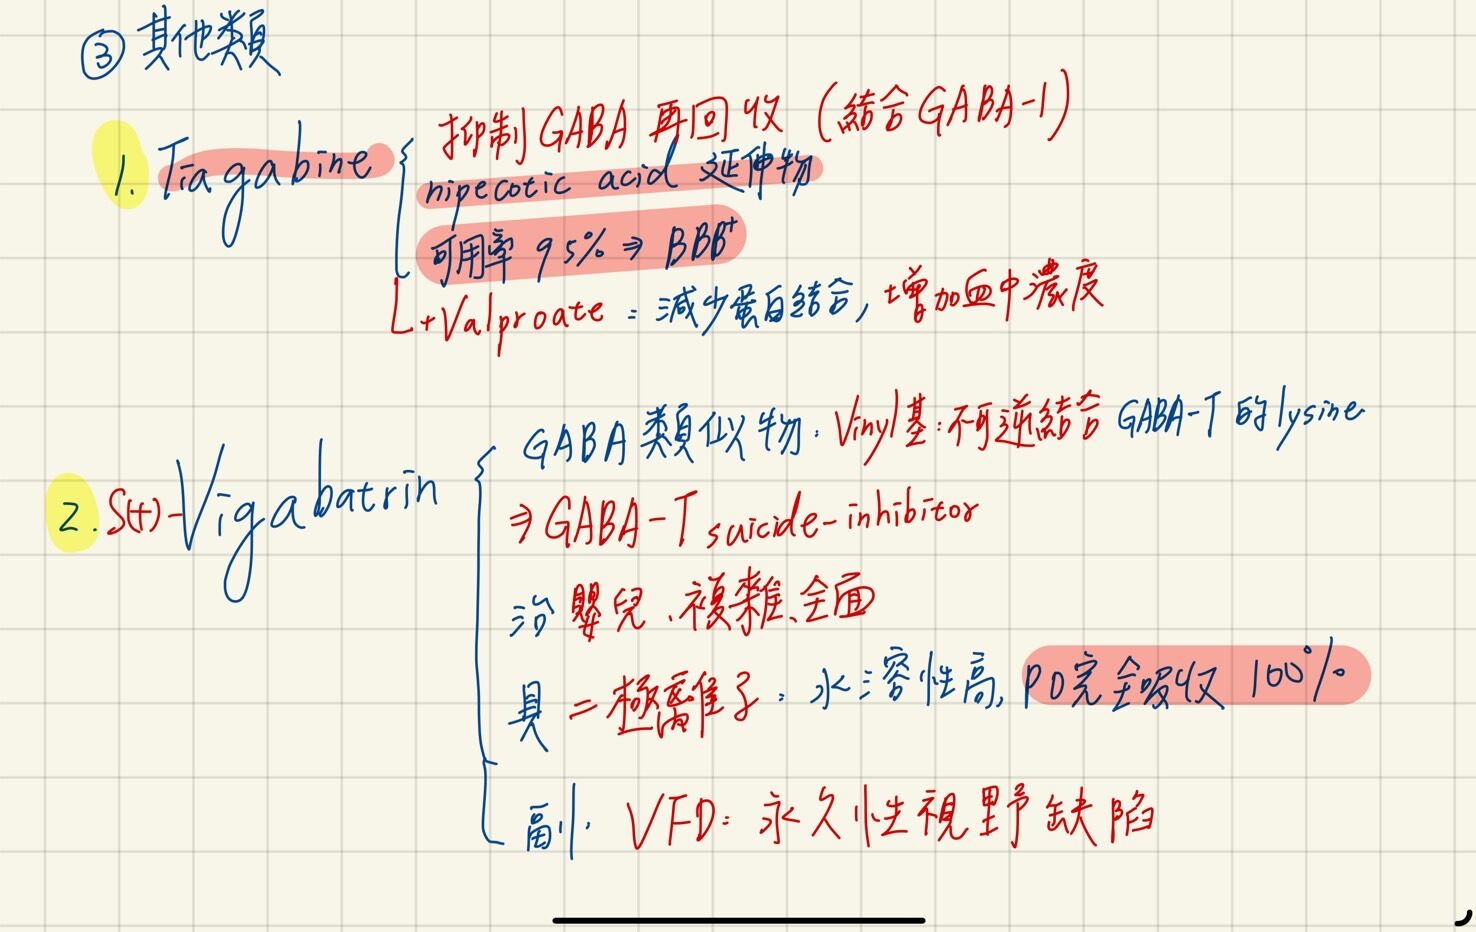 ③ 其他類
1. Tiagabine
抑制GABA再回收 (結合GABA-1)
nipecotic acid 延伸物
可用率 95% ⇒ BBB⁺
+Valproate：減少蛋白結合, 增加血中濃度
2. S(+)-Vigabatrin
GABA類似物：Vinyl基：不可逆結合 GABA-T的lysine
⇒ GABA-T suicide-inhibitor
治 嬰兒、複雜、全面
具二極離子：水溶性高, PO完全吸收 100%
副：VFD：永久性視野缺陷